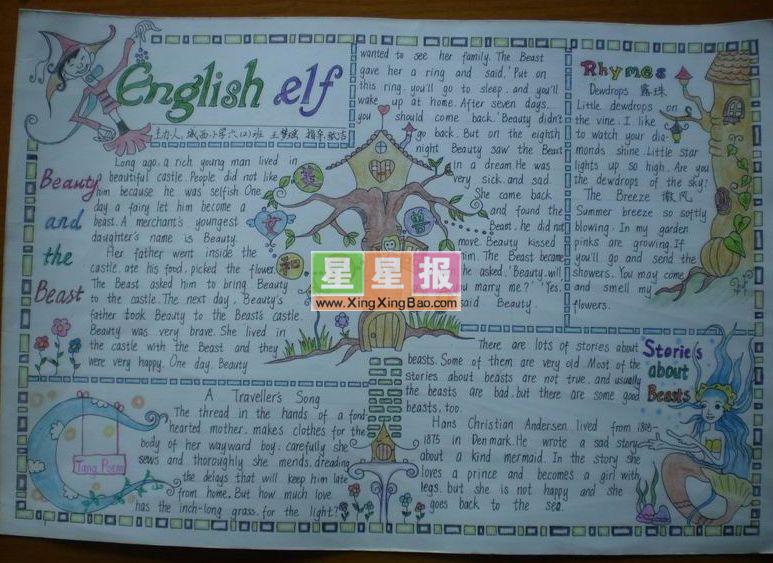 English elf
主办人:城西小学六(2)班 王梦瑶 指导:
Beauty
and
the
Beast
Long ago, a rich young man lived in
a beautiful castle. People did not like
him because he was selfish One
day a fairy let him become a
beast. A merchant's youngest
daughter's name is Beauty.
Her father went inside the
castle, ate his food, picked the flower
The Beast asked him to bring Beauty
to the castle. The next day, Beauty's
father took Beauty to the Beast's castle.
Beauty was very brave. She lived in
the castle with the Beast and they
were very happy. One day, Beauty
wanted to see her family. The Beast
gave her a ring and said,'Put on
this ring, you'll go to sleep, and you'll
wake up at home. After seven days,
you should come back.' Beauty didn't
go back. But on the eighth
night Beauty saw the Beast
in a dream. He was
very sick, and sad.
She came back
and found the
Beast, he did not
move. Beauty kissed
him. The Beast became
he asked.'Beauty, will
you marry me?' 'Yes,
said Beauty.
美
女
和
兽
星星报
www.XingXingBao.com
Rhymes
Dewdrops 露珠
Little dewdrops on
the vine. I like
to watch your dia-
monds shine. Little star
lights up so high. Are you
the dewdrops of the sky?
The Breeze 微风
Summer breeze so softly
blowing. In my garden
pinks are growing. If
you'll go and send the
showers. You may come
and smell my
flowers.
Tang Poem
A Traveller's Song
The thread in the hands of a fond
hearted mother. makes clothes for the
body of her wayward boy. carefully she
sews and thoroughly she mends. dreading
the delays that will keep him late
from home. But how much love
has the inch-long grass. for the light?
Stories
about
Beasts
There are lots of stories about
beasts. Some of them are very old. Most of the
stories about beasts are not true. and usually
the beasts are bad. but there are some good
beasts, too.
Hans Christian Andersen lived from 1808-
1875 in Denmark. He wrote a sad story
about a kind mermaid. In the story she
loves a prince and becomes a girl with
legs. but she is not happy and she
goes back to the sea.